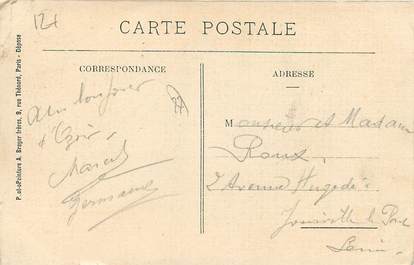 CARTE POSTALE
CORRESPONDANCE
ADRESSE
P. et o Peinture A. Breger frères, 9, rue Thénard, Paris - Déposé
Un bonjour
d'
Marcel
Germaine
Monsieur et Madame
Roux
2 Avenue
Joinville le Pont
Seine